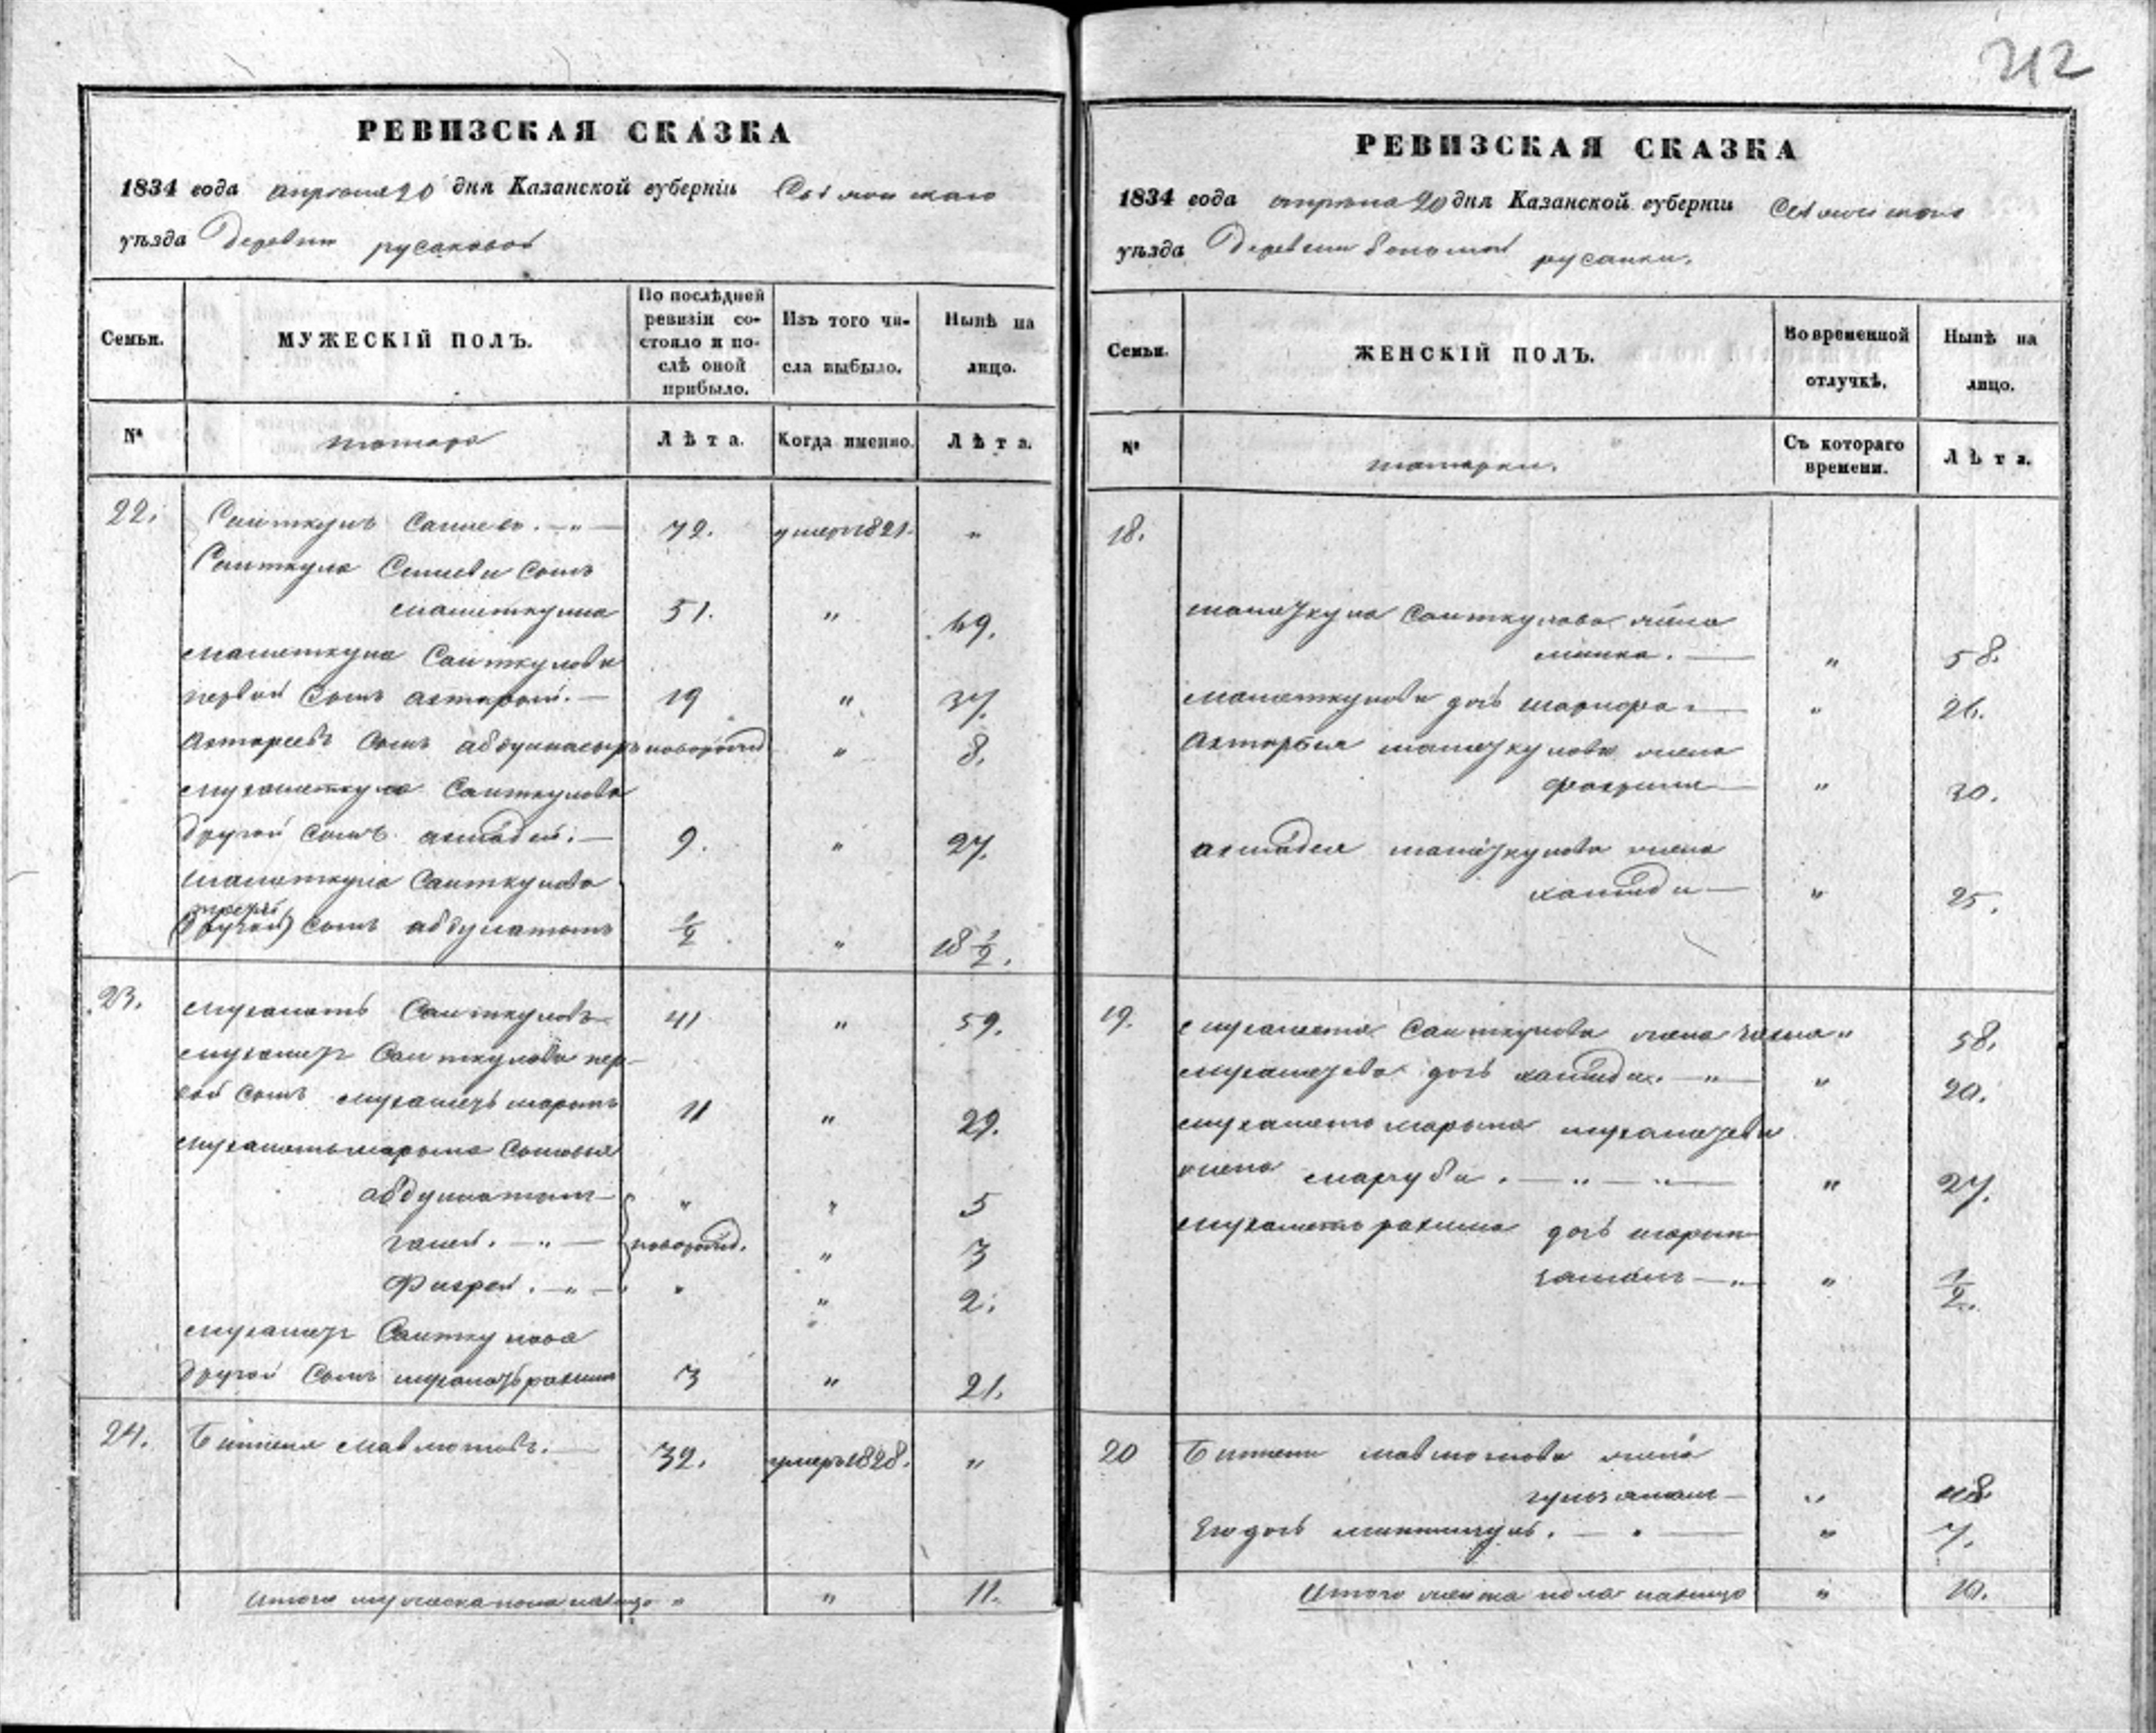 212
РЕВИЗСКАЯ СКАЗКА
1834 года апреля 20 дня Казанской губерніи
уѣзда Деревни русаковой
Семьи.
МУЖЕСКІЙ ПОЛЪ.
По послѣдней ревизіи состояло и послѣ оной прибыло.
Изъ того числа выбыло.
Нынѣ на лицо.
№
татара
Лѣта.
Когда именно.
Лѣта.
22. Саиткулъ Сапиевъ. — „ — 72. умеръ 1821. „
Саиткула Сапиева сынъ
маметкула 51. „ 69.
маметкула Саиткулова
первой сынъ ахтарей. — 19 „ 37.
ахтареевъ сынъ абдулнасыръ новорожд „ 8.
мухаметкула Саиткулова
другой сынъ ахмадей. — 9. „ 27.
маметкула Саиткулова
третей
(другой) сынъ абдулатипъ ½ „ 18½.
23. мухаметь Саиткуловъ 41 „ 59.
мухаметь Саиткулова пер-
вой сынъ мухаметь шарыпъ 11 „ 29.
мухаметьшарыпа сыновья
абдуллатипъ — „ „ 5
галей. — „ — новорожд. „ 3
Фахрей. — „ — „ „ 2.
мухаметь Саиткулова
другой сынъ мухаметьрахимъ 3 „ 21.
24. Биккеня мавлютовъ. — 32. умеръ 1828. „
Итого мужеска пола налицо „ „ 11.
РЕВИЗСКАЯ СКАЗКА
1834 года апреля 20 дня Казанской губерніи
уѣзда Деревни большой русаки.
Семьи.
ЖЕНСКІЙ ПОЛЪ.
Во временной отлучкѣ.
Нынѣ на лицо.
№
татарки.
Съ котораго времени.
Лѣта.
18.
маметкула Саиткулова жена
— „ 58.
маметкулова дочь — „ 26.
Ахтарея маметкулова жена
— „ 30.
ахмадея маметкулова жена
хамида — „ 25.
19. мухаметя Саиткулова жена „ 58.
мухаметева дочь хамида. — „ — „ 20.
мухаметь шарыпа мухаметева
жена маргуба. — „ — „ — „ 27.
мухаметь рахима дочь шарып
замал — „ — „ ½.
20 Биккени мавлютова жена
гулзамал — „ 48
Его дочь минлигуль. — „ — „ 7.
Итого женска пола налицо „ 10.